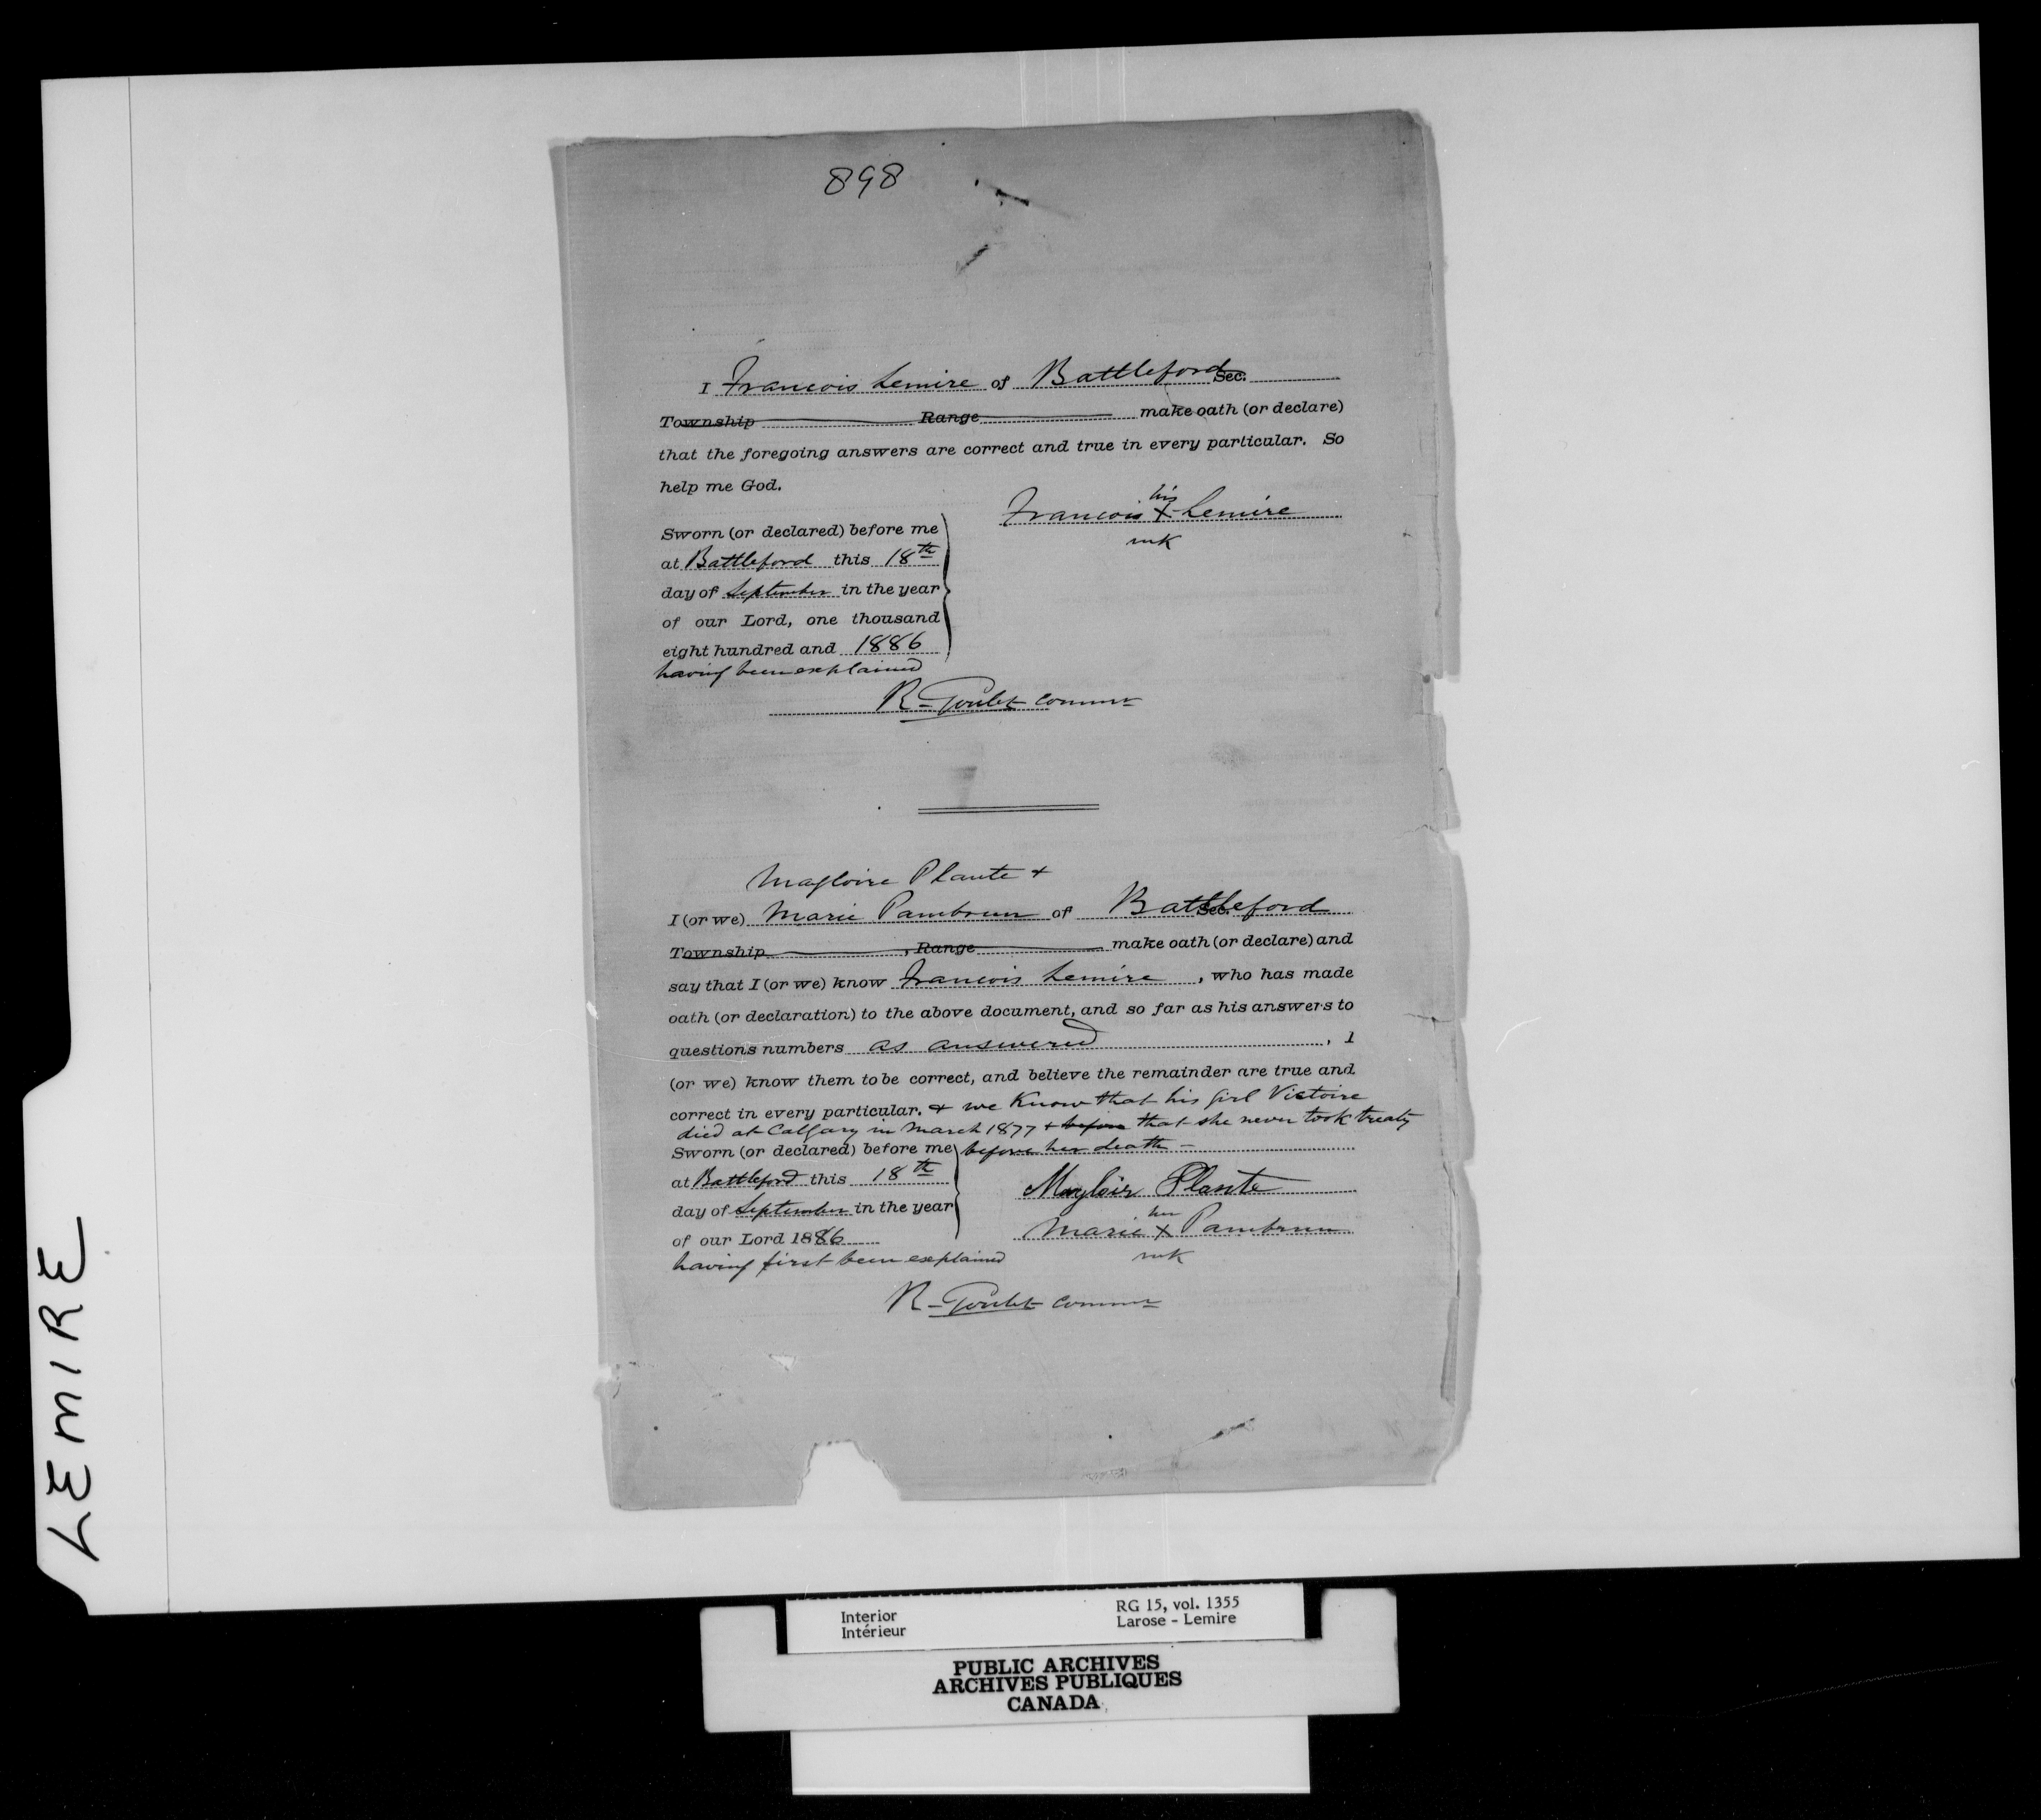 898
I Francois Lemire of Battleford Sec.
Township Range make oath (or declare)
that the foregoing answers are correct and true in every particular. So
help me God.
his
Francois X Lemire
mk
Sworn (or declared) before me
at Battleford this 18th
day of September in the year
of our Lord, one thousand
eight hundred and 1886
having been explained
R. Goulet Commr
Magloire Plante +
I (or we) Marie Pambrun of Battleford Sec.
Township , Range make oath (or declare) and
say that I (or we) know Francois Lemire , who has made
oath (or declaration) to the above document, and so far as his answers to
questions numbers as answered , I
(or we) know them to be correct, and believe the remainder are true and
correct in every particular. + we Know that his girl Victoire
died at Calgary in March 1877 + before that she never took treaty
before her death -
Sworn (or declared) before me
at Battleford this 18th
day of September in the year
of our Lord 1886
having first been explained
Magloir Plante
her
Marie X Pambrun
mk
R. Goulet Commr
LEMIRE
Interior
Intérieur
RG 15, vol. 1355
Larose - Lemire
PUBLIC ARCHIVES
ARCHIVES PUBLIQUES
CANADA